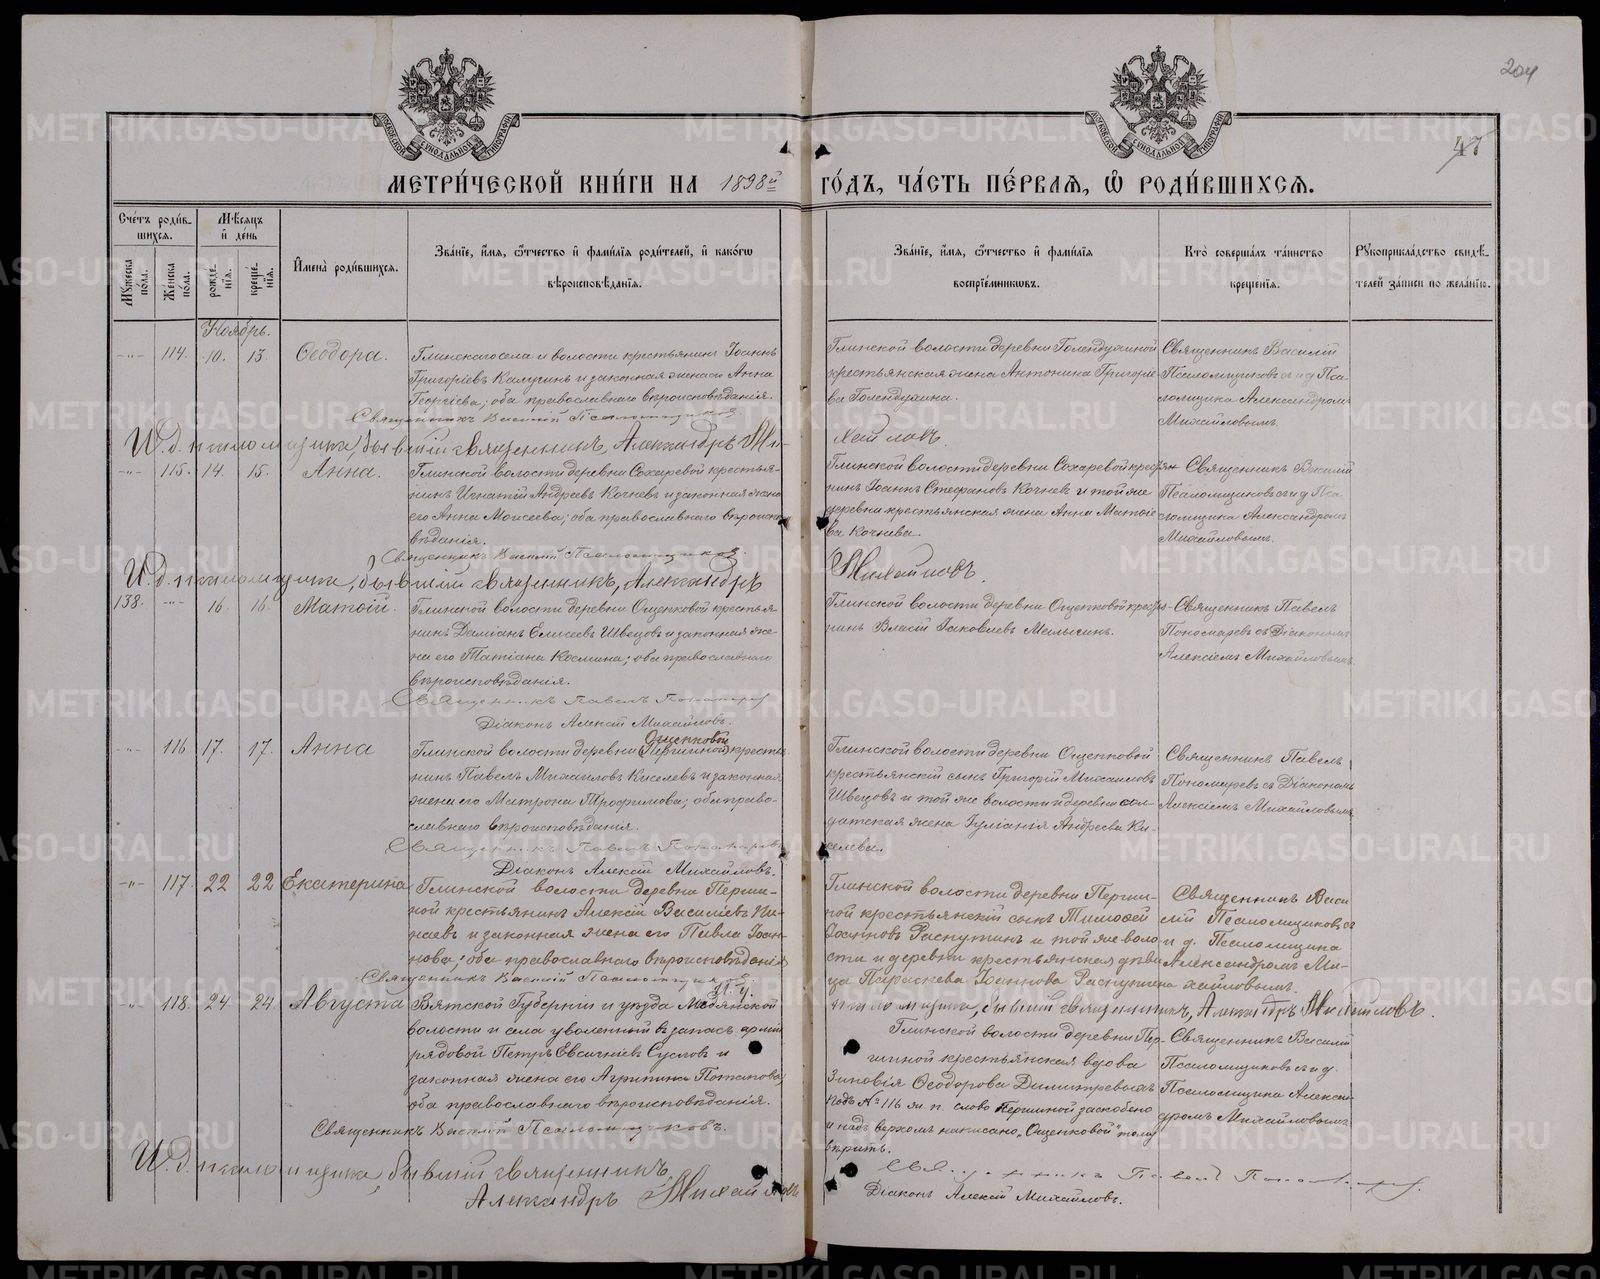 204
47
МОСКОВСКОЙ СѴНОДАЛЬНОЙ ТИПОГРАФІИ
МОСКОВСКОЙ СѴНОДАЛЬНОЙ ТИПОГРАФІИ
МЕТРИ́ЧЕСКОЙ КНИ́ГИ НА 1898й ГО́ДЪ, ЧА́СТЬ ПЕ́РВАЯ, Ѡ҆ РОДИ́ВШИХСЯ.
Сче́тъ роди́в-
шихся.
Му́жеска по́ла.
Же́нска по́ла.
Мѣ́сяцъ
и҆ де́нь
рожде́-
нія.
креще́-
нія.
И҆мена̀ роди́вшихся.
Зва́ніе, и҆́мя, ѻ҆́тчество и҆ фами́лія роди́телей, и҆ како́гѡ
вѣроисповѣ́данія.
Зва́ніе, и҆́мя, ѻ҆́тчество и҆ фами́лія
воспріе́мникѡвъ.
Кто̀ соверша́лъ та́инство
креще́нія.
Рꙋкоприкла́дство свидѣ́-
телей за́писи по жела́нію.
Ноябрь.
-"- 114. 10. 13. Ѳеодора.
Глинскаго села и волости крестьянинъ Іоаннъ
Григоріевъ Калугинъ и законная жена его Анна
Георгіева; оба православнаго вѣроисповѣданія.
Священникъ Василій Псаломщиковъ.
И. д. псаломщика, бывшій священникъ, Александръ Ми-
хайловъ.
Глинской волости деревни Голендухиной
крестьянская жена Антонина Григорье-
ва Голендухина.
Священникъ Василій
Псаломщиковъ съ и д Пса-
ломщика Александромъ
Михайловымъ.
-"- 115. 14. 15. Анна.
Глинской волости деревни Сохаревой крестья-
нинъ Игнатій Андреевъ Кочневъ и законная жена
его Анна Моисеева; оба православнаго вѣроиспо-
вѣданія.
Священникъ Василій Псаломщиковъ.
И. д. псаломщика, бывшій священникъ, Александръ
Михайловъ.
Глинской волости деревни Сохаревой крестья-
нинъ Іоаннъ Стефановъ Кочневъ и той же
деревни крестьянская жена Анна Матѳіе
ва Кочнева.
Священникъ Василій
Псаломщиковъ съ и д Пса
ломщика Александромъ
Михайловымъ.
138. -"- 16. 16. Матѳій.
Глинской волости деревни Ощепковой крестья-
нинъ Даміанъ Елисеевъ Швецовъ и законная же-
на его Татіана Космина; оба православнаго
вѣроисповѣданія.
Священникъ Павелъ Пономаревъ
Діаконъ Алексій Михайловъ.
Глинской волости деревни Ощепковой крестья-
нинъ Власій Іаковлевъ Мелькинъ.
Священникъ Павелъ
Пономаревъ съ Діакономъ
Алексіемъ Михайловымъ.
-"- 116 17. 17. Анна
Ощепковой
Глинской волости деревни (Першиной) кресть-
нинъ Павелъ Михаиловъ Киселевъ и законная
жена его Матрона Трофимова; оба право-
славнаго вѣроисповѣданія.
Священникъ Павелъ Пономаревъ
Діаконъ Алексій Михайловъ.
Глинской волости деревни Ощепковой
крестьянскій сынъ Григорій Михаиловъ
Швецовъ и той же волости и деревни сол-
датская жена Іуліанія Андреева Ки-
селева.
Священникъ Павелъ
Пономаревъ съ Діакономъ
Алексіемъ Михайловымъ.
-"- 117. 22 22 Екатерина
Глинской волости деревни Перши-
ной крестьянинъ Алексій Василіевъ
и законная жена его Павла Іоан-
нова; оба православнаго вѣроисповѣданія
Священникъ Василій Псаломщиковъ
И. д.
псаломщика, бывшій священникъ, Александръ Михайловъ.
Глинской волости деревни Перши-
ной крестьянскій сынъ Тимоѳей
Іоанновъ Распутинъ и той же воло-
сти и деревни крестьянская дѣви
ца Параскева Іоаннова Распутина
Священникъ Васи
лій Псаломщиковъ съ
и д. Псаломщика
Александромъ Ми-
хайловымъ.
-"- 118. 24 24 Августа
Вятской Губерніи и уѣзда Медянской
волости и села уволенный въ запасъ арміи
рядовой Петръ Евсигніевъ Сусловъ и
законная жена его Агрипина Потапова,
оба православнаго вѣроисповѣданія.
Священникъ Василій Псаломщиковъ.
И. д. псаломщика, бывшій священникъ,
Александръ Михайловъ
Глинской волости деревни Пер-
шиной крестьянская вдова
Зиновія Ѳеодорова Димитревыхъ
Подъ № 116 ж. п. слово Першиной заскоблено
и надъ верхомъ написано „Ощепковой" тому
вѣрить.
Священникъ Павелъ Пономаревъ.
Діаконъ Алексій Михайловъ.
Священникъ Василій
Псаломщиковъ съ и д.
Псаломщика Алексан-
дромъ Михайловымъ
METRIKI.GASO-URAL.RU